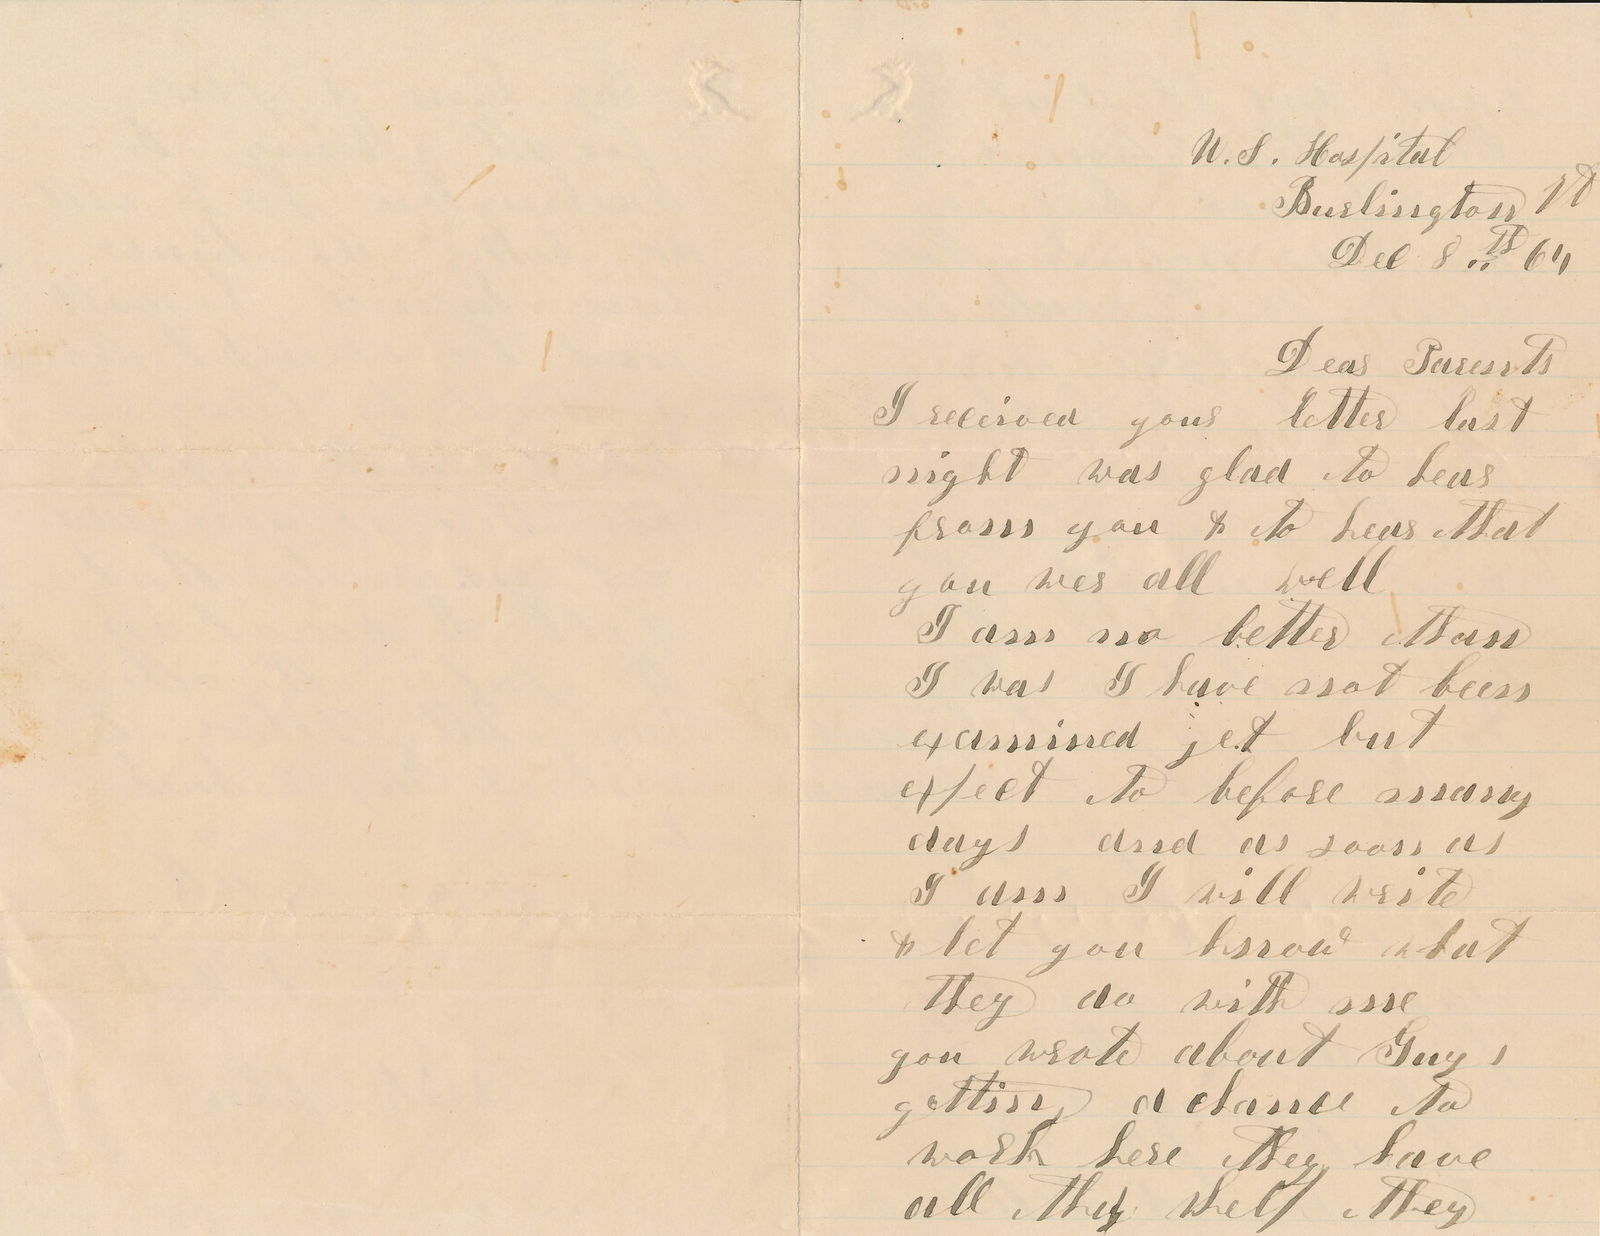 U. S. Hospital
Burlington Vt
Dec 8th 64
Dear Parents
I received your letter last
night was glad to hear
from you & to hear that
you wer all well
I am no better than
I was I have not been
examined yet but
expect to before many
days and as soon as
I am I will write
& let you know what
they do with me
you wrote about Guys
getting a chance to
work here they have
all the help they